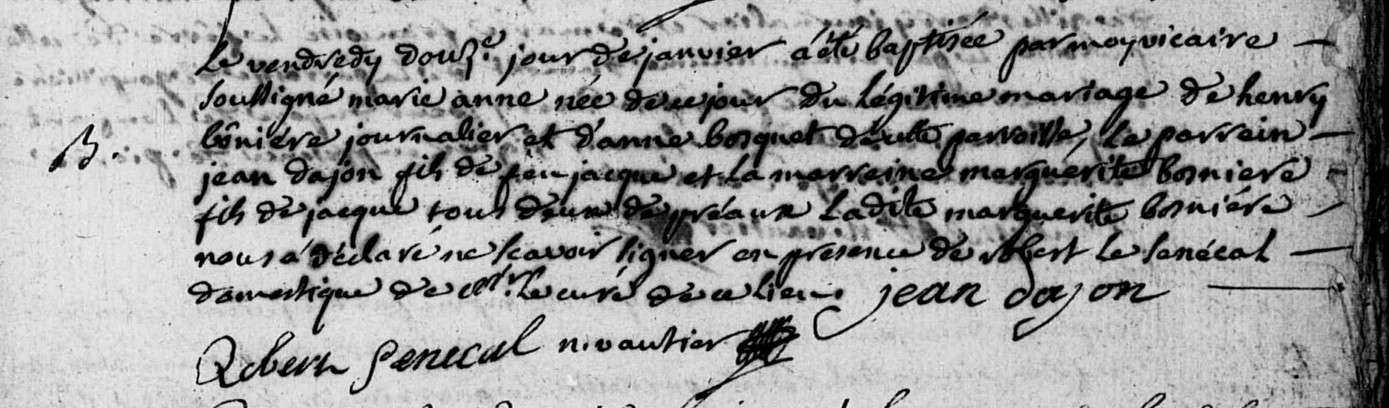 Le vendredy douz.e jour de janvier a été baptisée par moy vicaire
soussigné marie anne née de ce jour du légitime mariage de henry
bôniére journalier et d'anne bosquet de cette parroisse, le parrein
jean dajon fils de feu jacque et la marreine marguérite bosniere
fils de jacque tous deux de préaux ladite marguerite bosniére
nous a déclaré ne scavoir signer en presence de robert le senécal
domestique de le curé de ce lieu. jean dajon
Robert Senecal n. vautier
B.